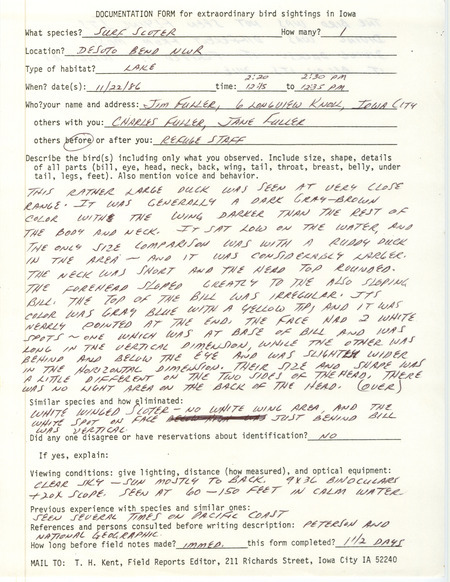 DOCUMENTATION FORM for extraordinary bird sightings in Iowa
What species? SURF SCOTER How many? 1
Location? DESOTO BEND NWR
Type of habitat? LAKE
2:20 2:30 PM
When? date(s): 11/22/86 time: 12:45 to 12:35 PM
Who? your name and address: JIM FULLER, 6 LONGVIEW KNOLL, IOWA CITY
others with you: CHARLES FULLER, JANE FULLER
others before or after you: REFUGE STAFF
Describe the bird(s) including only what you observed. Include size, shape, details
of all parts (bill, eye, head, neck, back, wing, tail, throat, breast, belly, under
tail, legs, feet). Also mention voice and behavior.
THIS RATHER LARGE DUCK WAS SEEN AT VERY CLOSE
RANGE. IT WAS GENERALLY A DARK GRAY-BROWN
COLOR WITH THE WING DARKER THAN THE REST OF
THE BODY AND NECK. IT SAT LOW ON THE WATER, AND
THE ONLY SIZE COMPARISON WAS WITH A RUDDY DUCK
IN THE AREA - AND IT WAS CONSIDERABLY LARGER.
THE NECK WAS SHORT AND THE HEAD TOP ROUNDED.
THE FOREHEAD SLOPED GREATLY TO THE ALSO SLOPING
BILL. THE TOP OF THE BILL WAS IRREGULAR. ITS
COLOR WAS GRAY BLUE WITH A YELLOW TIP, AND IT WAS
NEARLY POINTED AT THE END. THE FACE HAD 2 WHITE
SPOTS - ONE WHICH WAS AT BASE OF BILL AND WAS
LONG IN THE VERTICAL DIMENSION, WHILE THE OTHER WAS
BEHIND AND BELOW THE EYE AND WAS SLIGHTLY WIDER
IN THE HORIZONTAL DIMENSION. THEIR SIZE AND SHAPE WAS
A LITTLE DIFFERENT ON THE TWO SIDES OF THE HEAD. THERE
WAS NO LIGHT AREA ON THE BACK OF THE HEAD. (OVER)
Similar species and how eliminated:
WHITE WINGED SCOTER - NO WHITE WING AREA, AND THE
WHITE SPOT ON FACE JUST BEHIND BILL
WAS VERTICAL.
Did any one disagree or have reservations about identification? NO
If yes, explain:
Viewing conditions: give lighting, distance (how measured), and optical equipment:
CLEAR SKY - SUN MOSTLY TO BACK. 9X36 BINOCULARS
+20X SCOPE. SEEN AT 60-150 FEET IN CALM WATER
Previous experience with species and similar ones:
SEEN SEVERAL TIMES ON PACIFIC COAST
References and persons consulted before writing description: PETERSON AND
NATIONAL GEOGRAPHIC.
How long before field notes made? IMMED. this form completed? 1 1/2 DAYS
MAIL TO: T. H. Kent, Field Reports Editor, 211 Richards Street, Iowa City IA 52240